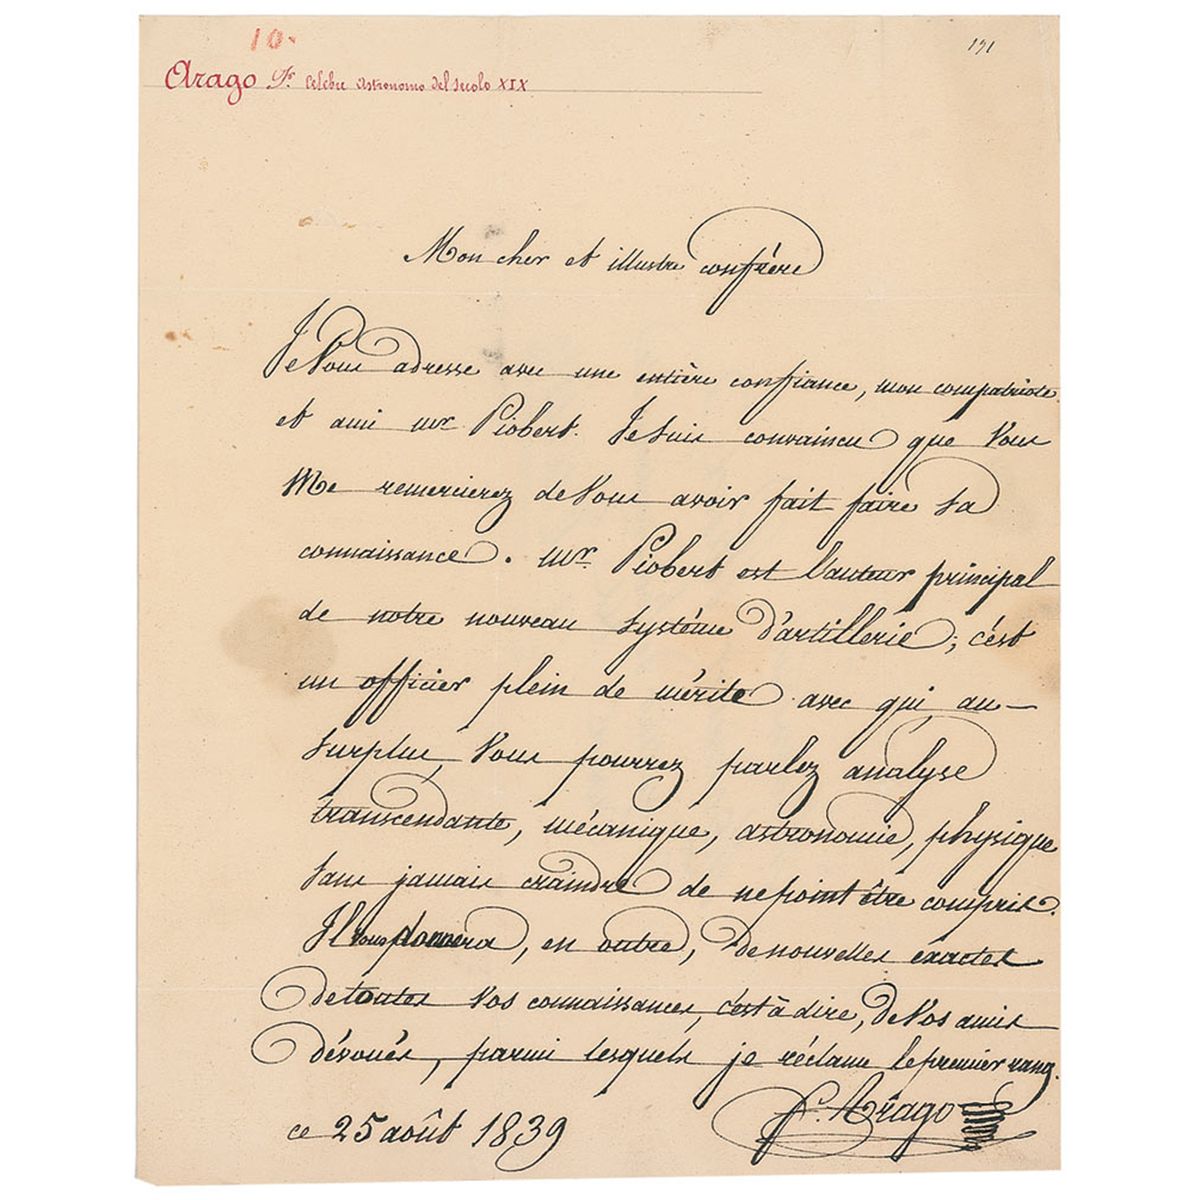 10.
191
Arago Fs. Celebre Astronomo del secolo XIX
Mon cher et illustre confrère
Je Vous adresse avec une entière confiance, mon compatriote
et ami mr. Piobert. Je suis convaincu que Vous
Me remercierez de Vous avoir fait faire sa
connaissance. mr. Piobert est l'auteur principal
de notre nouveau système d'artillerie; c'est
un officier plein de mérite avec qui au-
surplus, Vous pourrez parlez analyse
transcendante, mécanique, astronomie, physique
sans jamais craindre de ne point être compris.
Il vous donnera, en outre, de nouvelles exactes
de toutes Vos connaissances, c'est à dire, de Vos amis
dévoués, parmi lesquels je réclame le premier rang.
F. Arago
ce 25 août 1839